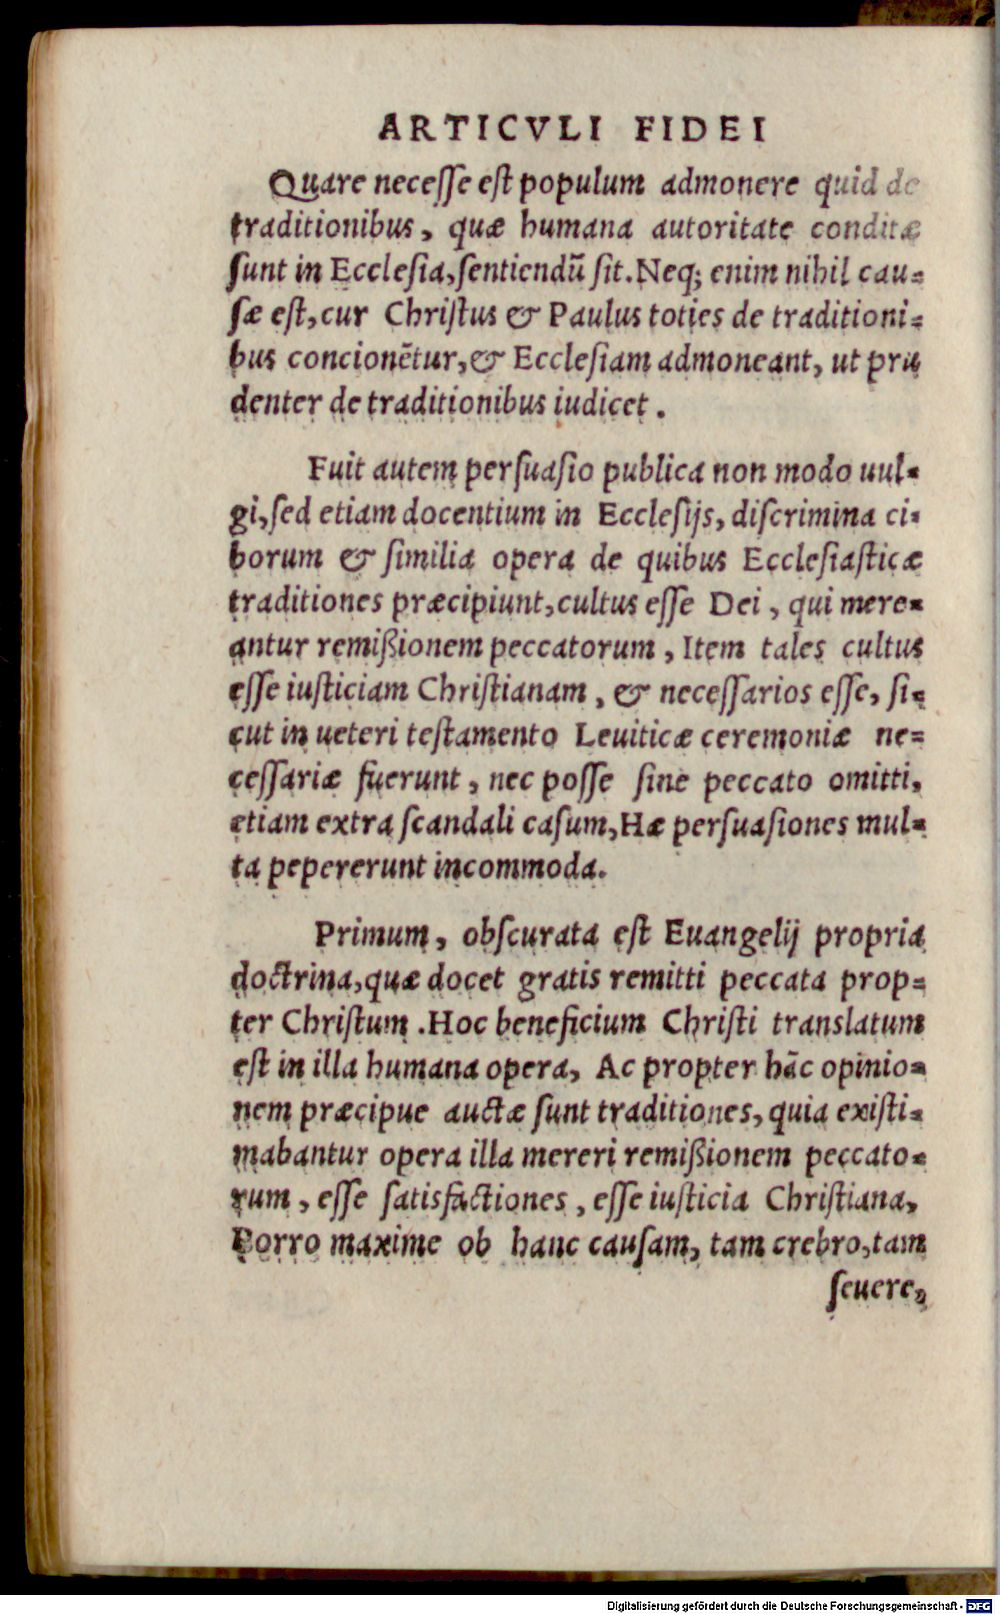 ARTICVLI FIDEI
Quare necesſe eſt populum admonere quid de
traditionibus, quæ humana autoritate conditæ
ſunt in Eccleſia, ſentiendũ ſit. Neq; enim nihil cau-
ſæ eſt, cur Chriſtus & Paulus toties de traditioni-
bus concionẽtur, & Eccleſiam admoneant, ut pru
denter de traditionibus iudicet.
Fuit autem perſuaſio publica non modo uul-
gi, ſed etiam docentium in Eccleſijs, diſcrimina ci-
borum & ſimilia opera de quibus Eccleſiaſticæ
traditiones præcipiunt, cultus eſſe Dei, qui mere-
antur remißionem peccatorum, Item tales cultus
eſſe iuſticiam Chriſtianam, & neceſſarios eſſe, ſi-
cut in ueteri teſtamento Leuiticæ ceremoniæ ne-
ceſſariæ fuerunt, nec poſſe ſine peccato omitti,
etiam extra ſcandali caſum, Hæ perſuaſiones mul-
ta pepererunt incommoda.
Primum, obſcurata eſt Euangelij propria
doctrina, quæ docet gratis remitti peccata prop-
ter Chriſtum. Hoc beneficium Chriſti translatum
eſt in illa humana opera, Ac propter hãc opinio-
nem præcipue auctæ ſunt traditiones, quia exiſti-
mabantur opera illa mereri remißionem peccato-
rum, eſſe ſatisfactiones, eſſe iuſticia Chriſtiana,
Porro maxime ob hanc cauſam, tam crebro, tam
ſeuere,
Digitalisierung gefördert durch die Deutsche Forschungsgemeinschaft - DFG